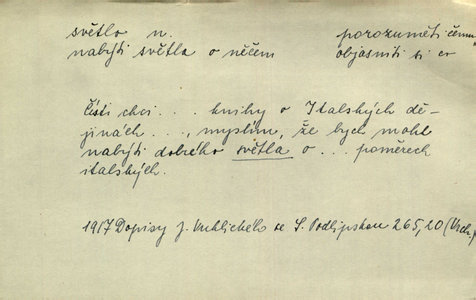 světlo n. porozuměti čemu
nabýti světla o něčem objasniti si co
Čísti chci . . . knihy o Italských dě-
jinách . . ., myslím, že bych mohl
nabýti dobrého světla o . . . poměrech
italských.
1917 Dopisy J. Vrchlického se S. Podlipskou 265,20 (Vrch.)